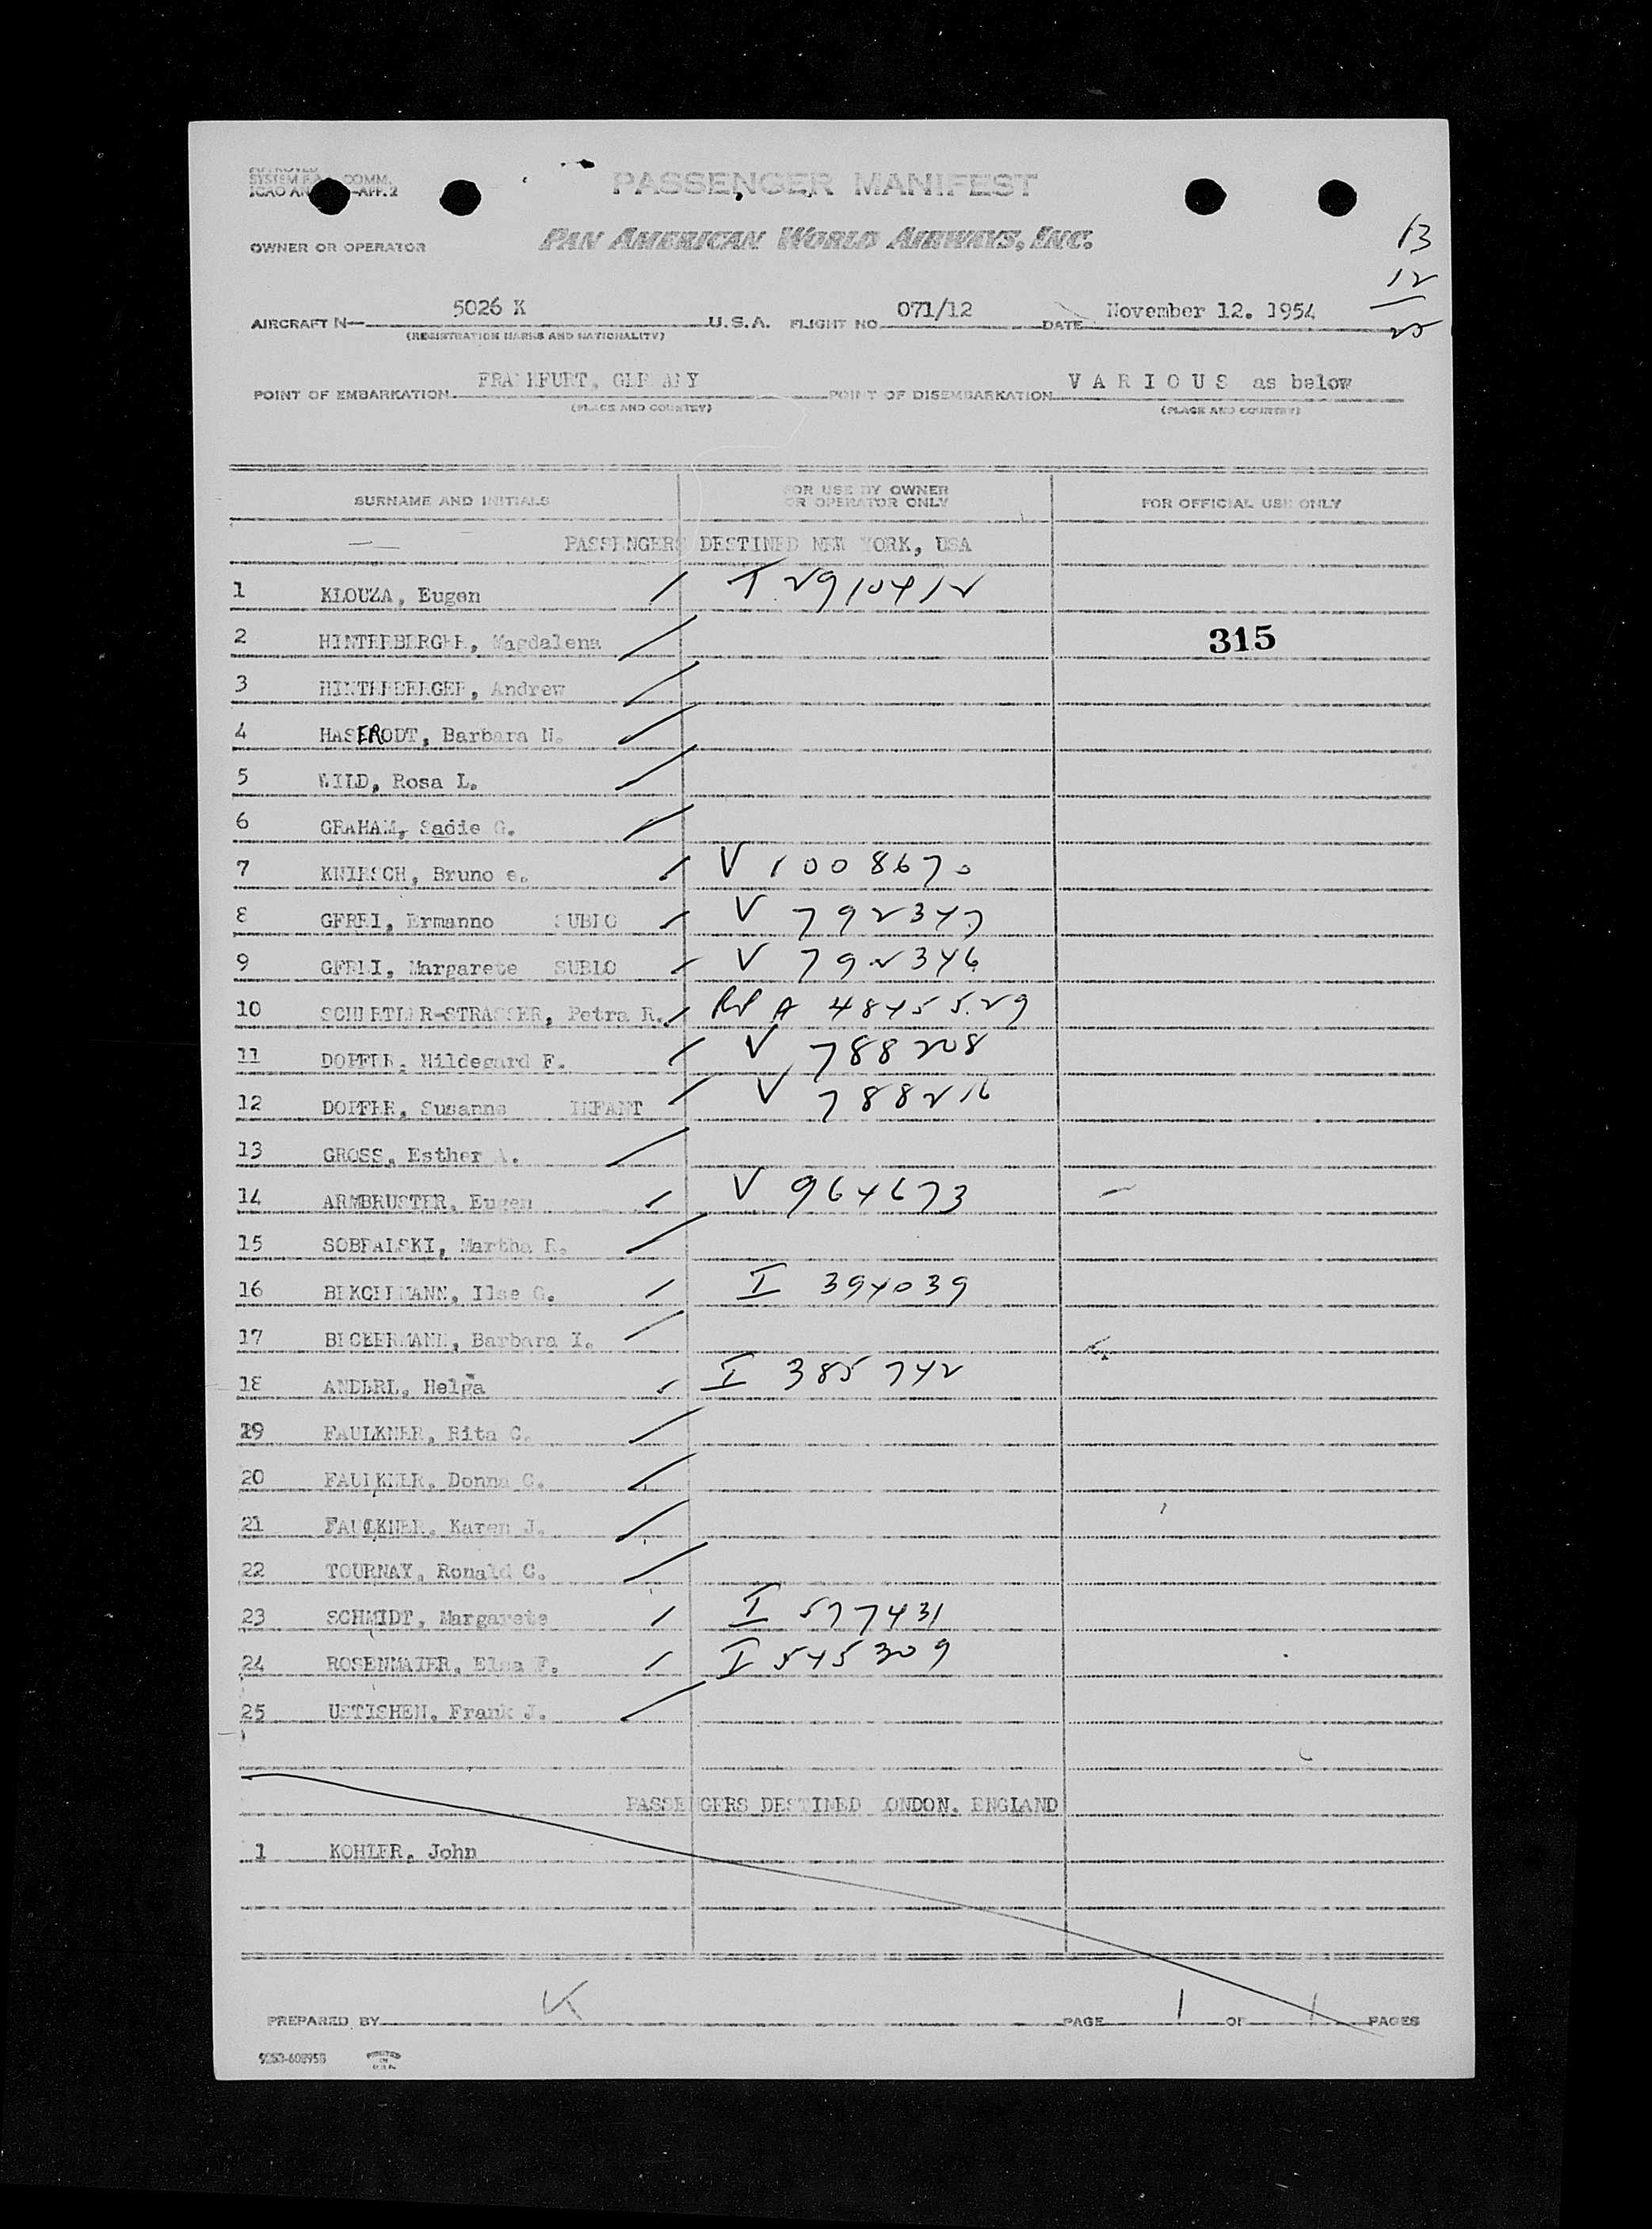 APPROVED
SYSTEM F.A.L. COMM.
ICAO AN -APP. 2
PASSENGER MANIFEST
OWNER OR OPERATOR PAN AMERICAN WORLD AIRWAYS, INC.
13
12
25
AIRCRAFT N— 5026 K U.S.A. FLIGHT NO 071/12 DATE November 12. 1954
(REGISTRATION MARKS AND NATIONALITY)
POINT OF EMBARKATION FRANKFURT, GERMANY POINT OF DISEMBARKATION V A R I O U S as below
(PLACE AND COUNTRY) (PLACE AND COUNTRY)
SURNAME AND INITIALS FOR USE BY OWNER OR OPERATOR ONLY FOR OFFICIAL USE ONLY
PASSENGERS DESTINED NEW YORK, USA
1 KLOUZA, Eugen T 2910412
2 HINTERBERGER, Magdalena 315
3 HINTERBERGER, Andrew
4 HASERODT, Barbara N.
5 WILD, Rosa L.
6 GRAHAM, Sadie G.
7 KNIRSCH, Bruno e. V 1008670
8 GFREI, Ermanno SUBLO V 792347
9 GFREI, Margarete SUBLO V 792346
10 SCHERTLER-STRASSER, Petra R. A 4845529
11 DOPFER, Hildegard F. V 788208
12 DOPFER, Susanne INFANT V 788216
13 GROSS, Esther A.
14 ARMBRUSTER, Eugen V 964673
15 SOBRALSKI, Martha R.
16 BEKCERMANN, Ilse G. I 394039
17 BECKERMANN, Barbara I.
18 ANDERL, Helga I 385742
19 FAULKNER, Rita C.
20 FAULKNER, Donna C.
21 FAULKNER, Karen J.
22 TOURNAY, Ronald C.
23 SCHMIDT, Margarete I 577431
24 ROSENMAIER, Elsa F. I 545309
25 USTISHEN, Frank J.
PASSENGERS DESTINED LONDON. ENGLAND
1 KOHLER, John
PREPARED BY K PAGE 1 OF 1 PAGES
PRINTED IN U.S.A.